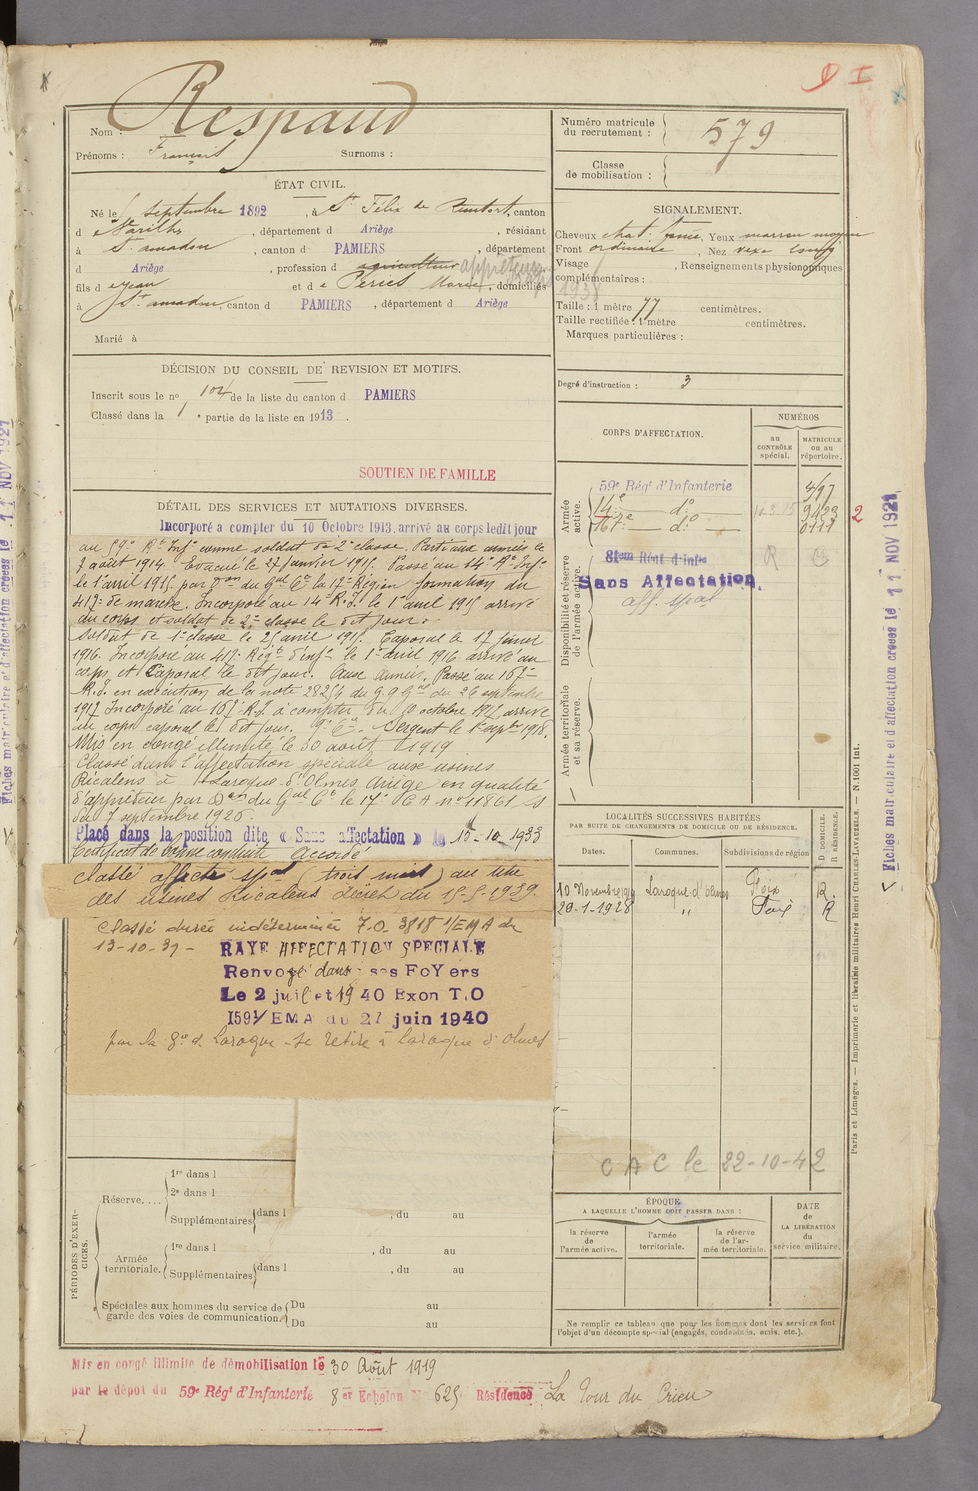 Nom : Respaud
Prénoms : François Surnoms :
Numéro matricule du recrutement : 579
Classe de mobilisation :
ÉTAT CIVIL.
Né le septembre 1892, à St Félix de, canton
d Varilhes, département d Ariège, résidant
à St amadou, canton d PAMIERS, département
d Ariège, profession d agriculteur
fils d Jean et de Marie, domiciliés
à St amadou, canton d PAMIERS, département d Ariège
Marié à
SIGNALEMENT.
Cheveux chat. foncé, Yeux marron moyen
Front ordinaire, Nez
Visage, Renseignements physionomiques
complémentaires :
1938
Taille : 1 mètre 77 centimètres.
Taille rectifiée : 1 mètre centimètres.
Marques particulières :
Degré d'instruction : 3
DÉCISION DU CONSEIL DE REVISION ET MOTIFS.
Inscrit sous le no 104 de la liste du canton d PAMIERS
Classé dans la 1e partie de la liste en 1913.
SOUTIEN DE FAMILLE
CORPS D'AFFECTATION.
NUMÉROS
au CONTRÔLE spécial.
MATRICULE ou au répertoire.
Armée active.
59e Régt d'Infanterie
14e do
167e do
Disponibilité et réserve de l'armée active.
81em Régt d'Infie
Sans Affectation
aff. spal
Armée territoriale et sa réserve.
DÉTAIL DES SERVICES ET MUTATIONS DIVERSES.
Incorporé à compter du 10 Octobre 1913. arrivé au corps ledit jour
au 59e Rt Infie comme soldat de 2e classe. Parti aux armées le
7 août 1914. Evacué le 27 Janvier 1915. Passé au 14e Rt Infie
le 1 avril 1915 par Don du Gal Ct la 17e Région formation du
417e de marche. Incorporé au 14e R.I. le 1er avril 1915 arrivé
au corps et soldat de 2e classe le dit jour.
Soldat de 1e classe le 25 avril 1915. Caporal le 17 février
1916. Incorporé au 417e Régt d'infie le 1er avril 1916 arrivé au
corps et Caporal le dit jour. Aux armées. Passé au 167e
R.I. en exécution de la note 28276 du G.Q.Gal du 26 septembre
1917 Incorporé au 167e R.I. à compter du 10 octobre 1917 arrivé
au corps caporal le dit jour. Sergent le 1er 1918.
Mis en congé illimité le 30 août 1919
Classé dans l'affectation spéciale aux usines
Ricalens à Laroque d'Olmes Ariège en qualité
d'apprêteur par Don du Gal Ct le 17e CA no 11861
du 7 septembre 1926.
Placé dans la position dite « Sans affectation » le 15-10-1933
Certificat de bonne conduite accordé
classé affecté spal (trois mois) au titre
des usines Ricalens décret du 15-5-1939.
Classé durée indéterminée T.O. 3818 1/EMA du
13-10-39 -
RAYE AFFECTATION SPECIALE
Renvoyé dans ses FoYers
Le 2 juillet 1940 Exon T.O
1591/EMA du 27 juin 1940
par la Gie d. Laroque - se retire à laroque d'olmes
LOCALITÉS SUCCESSIVES HABITÉES
PAR SUITE DE CHANGEMENTS DE DOMICILE OU DE RÉSIDENCE.
Dates. Communes. Subdivisions de région
D. DOMICILE. R. RÉSIDENCE.
10 Novembre Laroque d'Olmes Foix R.
29-1-1928 " Foix R
C A C le 22-10-42
ÉPOQUE
A LAQUELLE L'HOMME DOIT PASSER DANS :
la réserve de l'armée active.
l'armée territoriale.
la réserve de l'armée territoriale.
DATE de LA LIBÉRATION du service militaire.
Ne remplir ce tableau que pour les hommes dont les services font
l'objet d'un décompte spécial (engagés, condamnés, omis, etc.).
PÉRIODES D'EXERCICES.
Réserve....
1re dans l
2e dans l
Supplémentaires dans l, du au
Armée territoriale.
1re dans l, du au
Supplémentaires dans l, du au
Spéciales aux hommes du service de garde des voies de communication.
Du au
Du au
Mis en congé illimité de démobilisation le 30 Août 1919
par le dépôt du 59e Régt d'Infanterie 8er Echelon No 625 Résidence La Tour du Crieu
Fiches matriculaire et d'affectation créées le 11 NOV 1921
Fiches matriculaire et d'affectation créées le 11 NOV 1921
Paris et Limoges. — Imprimerie et librairie militaires Henri CHARLES-LAVAUZELLE. — N. 1001 int.